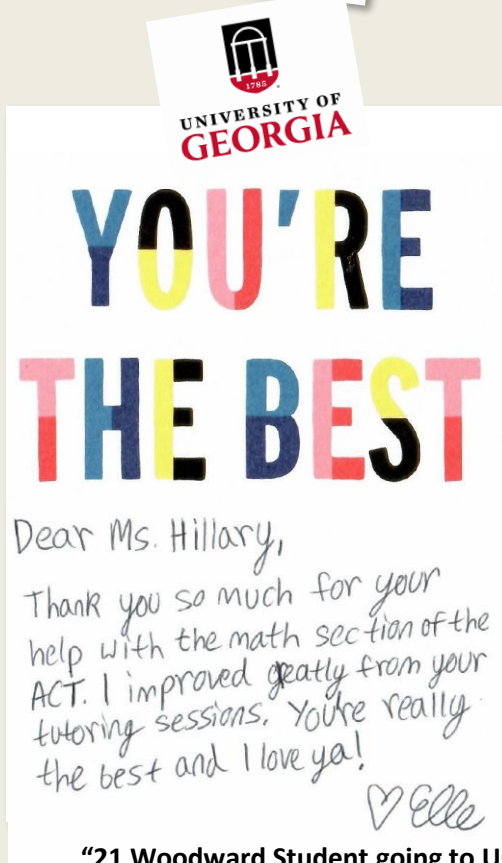 1785
UNIVERSITY OF
GEORGIA
YOU'RE
THE BEST
Dear Ms. Hillary,
Thank you so much for your
help with the math section of the
ACT. I improved greatly from your
tutoring sessions. You're really
the best and I love ya!
♡ Elle
"21 Woodward Student going to U